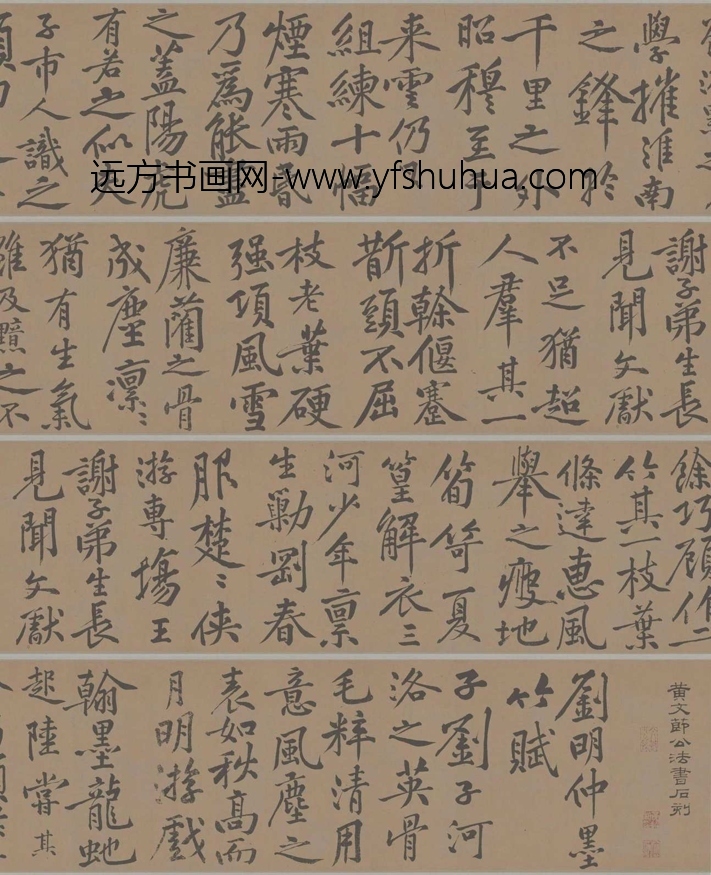 远方书画网-www.yfshuhua.com
學摧淮南
之鋒於
千里之外
昭穆至于
来雲仍
組練十幅
煙寒雨昏
乃爲能盡
之蓋陽虎
有若之似夫
子市人識之
謝子弟生長
見聞文獻
不足猶超
人羣其一
折榦偃蹇
斮頭不屈
枝老葉硬
强項風雪
廉藺之骨
成塵凛〻
猶有生氣
雖汲黯之不
餘巧顧作二
竹其一枝葉
條達惠風
舉之瘦地
筍笴夏
篁解衣三
河少年禀
生勦剛春
服楚〻侠
游專塲王
謝子弟生長
見聞文獻
黄文節公法書石刻
劉明仲墨
竹賦
子劉子河
洛之英骨
毛粹清用
意風塵之
表如秋高而
月明游戲
翰墨龍虵
起陸嘗其